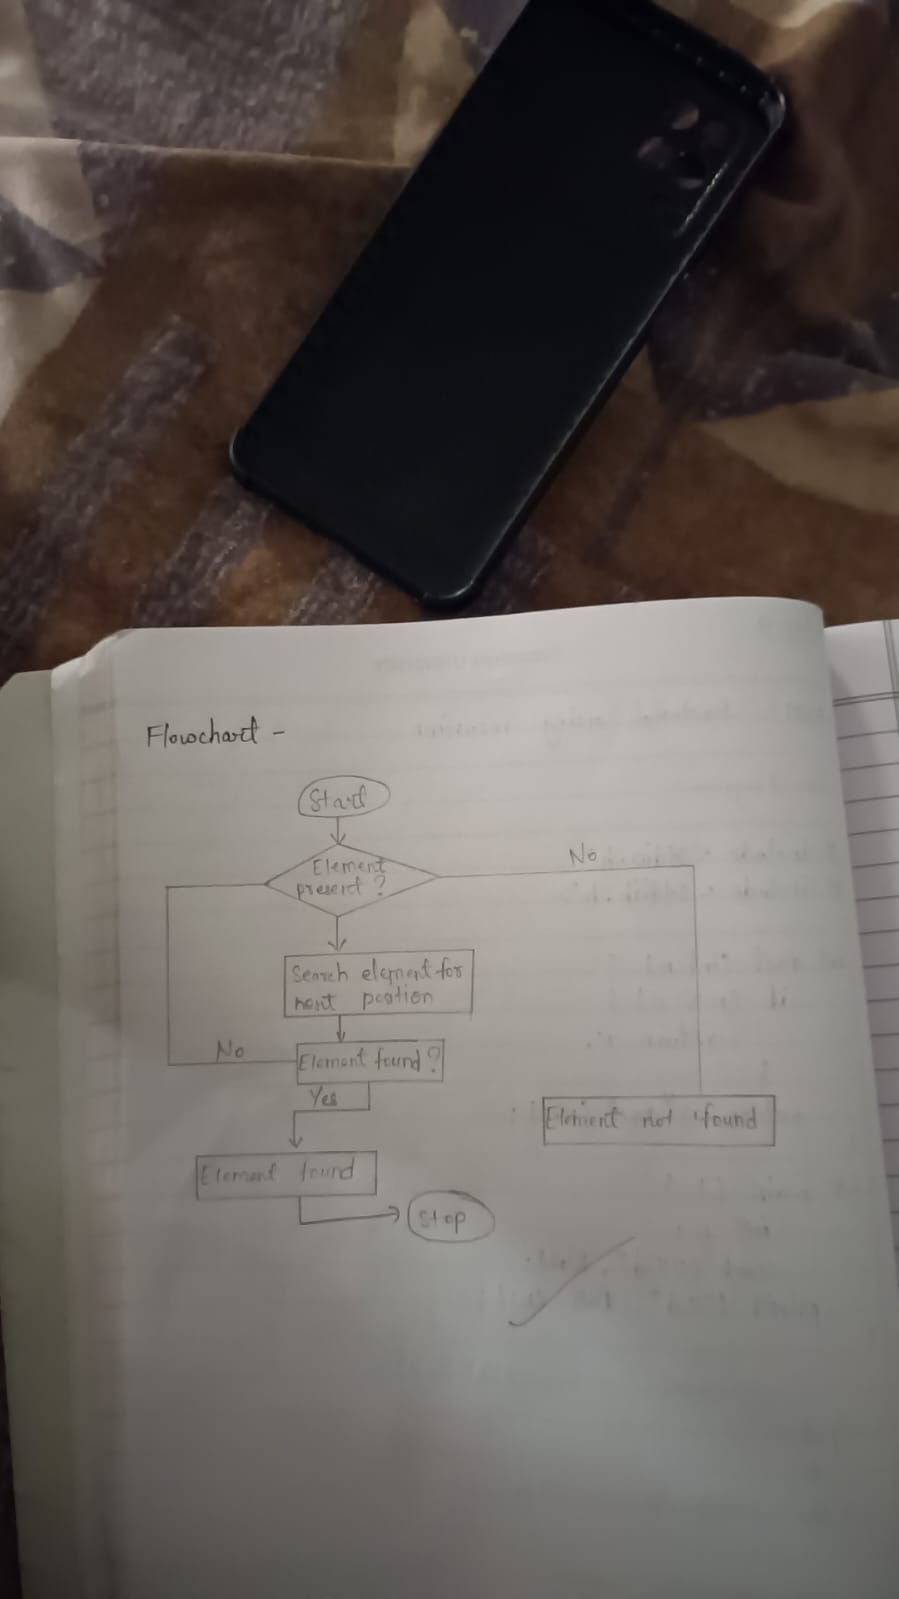 Flowchart -
Start
Element
present ?
No
Search element for
next postion
Element found ?
No
Yes
Element not found
Element found
Stop